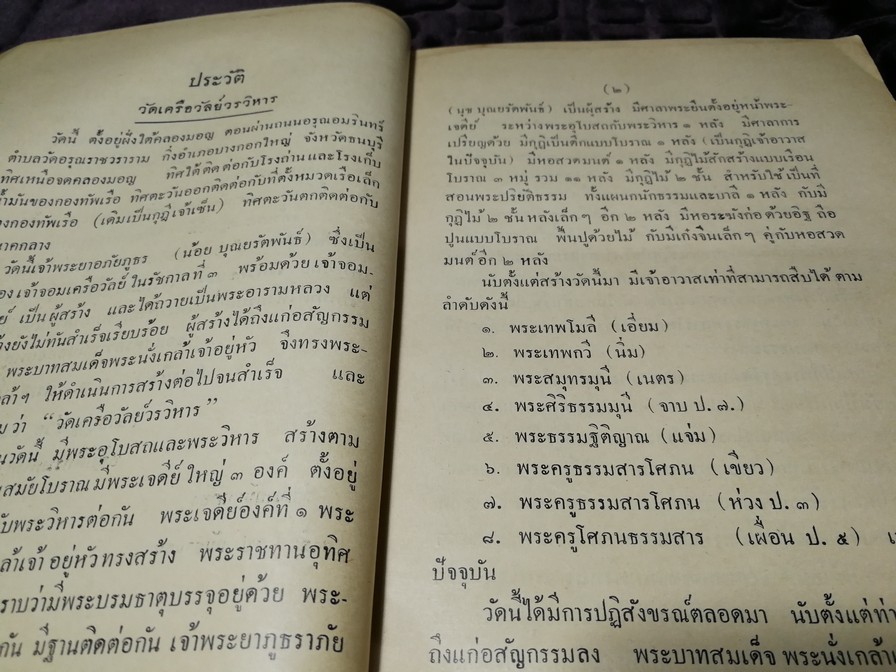 ประวัติ
วัดเครือวัลย์วรวิหาร
วัดนี้ ตั้งอยู่ฝั่งใต้คลองมอญ ตอนผ่านถนนอรุณอมรินทร์
ตำบลวัดอรุณราชวราราม กิ่งอำเภอบางกอกใหญ่ จังหวัดธนบุรี
ทิศเหนือจดคลองมอญ ทิศใต้ติดต่อกับโรงถ่านและโรงเก็บ
น้ำมันของกองทัพเรือ ทิศตะวันออกติดต่อกับที่ตั้งหมวดเรือเล็ก
ของกองทัพเรือ (เดิมเป็นกุฎีเจ้าเซ็น) ทิศตะวันตกติดต่อกับ
นาคกลาง
วัดนี้เจ้าพระยาอภัยภูธร (น้อย บุณยรัตพันธ์) ซึ่งเป็น
เจ้าจอมเครือวัลย์ ในรัชกาลที่ ๓ พร้อมด้วย เจ้าจอม-
เป็นผู้สร้าง และได้ถวายเป็นพระอารามหลวง แต่
ยังไม่ทันสำเร็จเรียบร้อย ผู้สร้างได้ถึงแก่อสัญกรรม
พระบาทสมเด็จพระนั่งเกล้าเจ้าอยู่หัว จึงทรงพระ-
ให้ดำเนินการสร้างต่อไปจนสำเร็จ และ
ว่า “วัดเครือวัลย์วรวิหาร”
วัดนี้ มีพระอุโบสถและพระวิหาร สร้างตาม
สมัยโบราณ มีพระเจดีย์ ใหญ่ ๓ องค์ ตั้งอยู่
พระวิหารต่อกัน พระเจดีย์องค์ที่ ๑ พระ
เจ้าอยู่หัวทรงสร้าง พระราชทานอุทิศ
ว่ามีพระบรมธาตุบรรจุอยู่ด้วย พระ-
มีฐานติดต่อกัน เจ้าพระยาภูธราภัย
(๒)
(นุช บุณยรัตพันธ์) เป็นผู้สร้าง มีศาลาพระยืนตั้งอยู่หน้าพระ-
เจดีย์ ระหว่างพระอุโบสถกับพระวิหาร ๑ หลัง มีศาลาการ
เปรียญด้วย มีกุฏิเป็นตึกแบบโบราณ ๑ หลัง (เป็นกุฏิเจ้าอาวาส
ในปัจจุบัน) มีหอสวดมนต์ ๑ หลัง มีกุฏิไม้สักสร้างแบบเรือน
โบราณ ๓ หมู่ รวม ๑๑ หลัง มีกุฏิไม้ ๒ ชั้น สำหรับใช้เป็นที่
สอนพระปริยัติธรรม ทั้งแผนกนักธรรมและบาลี ๑ หลัง กับมี
กุฏิไม้ ๒ ชั้นหลังเล็กๆ อีก ๒ หลัง มีหอระฆังก่อด้วยอิฐ ถือ
ปูนแบบโบราณ พื้นปูด้วยไม้ กับมีเก๋งจีนเล็กๆ คู่กับหอสวด
มนต์อีก ๒ หลัง
นับตั้งแต่สร้างวัดนี้มา มีเจ้าอาวาสเท่าที่สามารถสืบได้ ตาม
ลำดับดังนี้
๑. พระเทพโมลี (เอี่ยม)
๒. พระเทพกวี (นิ่ม)
๓. พระสมุทรมุนี (เนตร)
๔. พระศิริธรรมมุนี (จาบ ป. ๗.)
๕. พระธรรมฐิติญาณ (แจ่ม)
๖. พระครูธรรมสารโศภน (เขียว)
๗. พระครูธรรมสารโศภน (ห่วง ป. ๓)
๘. พระครูโศภนธรรมสาร (เผื่อน ป. ๕)
ปัจจุบัน
วัดนี้ได้มีการปฏิสังขรณ์ตลอดมา นับตั้งแต่ท่า
ถึงแก่อสัญกรรมลง พระบาทสมเด็จ พระนั่งเกล้า